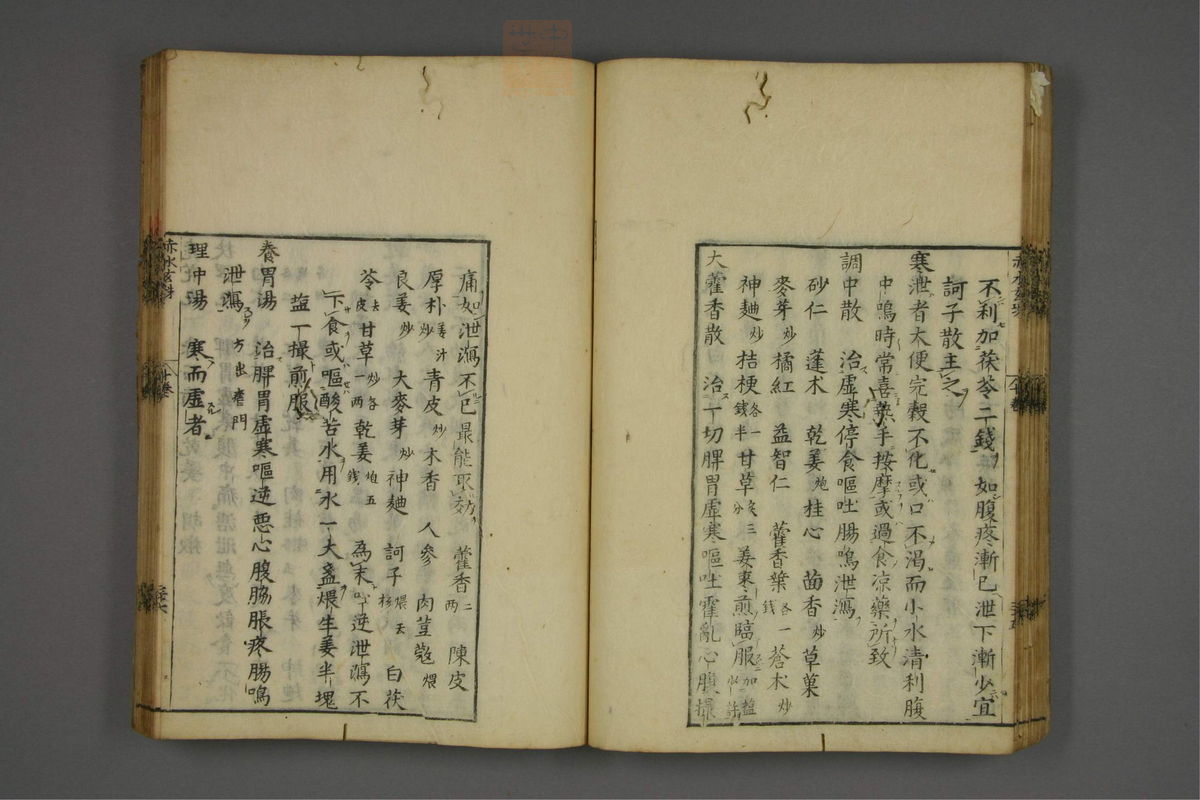 不利加茯苓二錢如腹疼漸已泄下漸少宜
訶子散主之
寒泄者大便完穀不化或口不渴而小水清利腹
中鳴時常喜熱手按摩或過食凉藥所致
調中散 治虛寒停食嘔吐腸鳴泄瀉
砂仁 蓬术 乾姜炮 桂心 茴香炒 草菓
麥芽炒 橘紅 益智仁 藿香葉各一錢 蒼术炒
神麯炒 桔梗各一錢半 甘草炙三分 姜棗煎臨服加塩
大藿香散 治一切脾胃虛寒嘔吐霍亂心腹撮
痛如泄瀉不已最能取効 藿香二兩 陳皮
厚朴姜汁炒 青皮炒 木香 人參 肉荳蔲煨
良姜炒 大麥芽炒 神麯 訶子煨去核 白茯
苓去皮 甘草炒各一兩 乾姜炮五錢 為末吐逆泄瀉不
下食或嘔酸苦水用水一大盞煨生姜半塊
塩一撮煎服
養胃湯 治脾胃虛寒嘔逆惡心腹脇脹疼腸鳴
泄瀉 方出瘧門
理中湯 寒而虛者
赤水玄珠